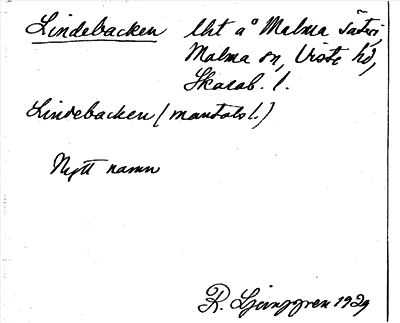 Lindebacken lht å Malma säteri,
Malma sn, Viste hd,
Skarab. l.
Lindebacken (mantalsl.)
Nytt namn
R. Ljunggren 1929